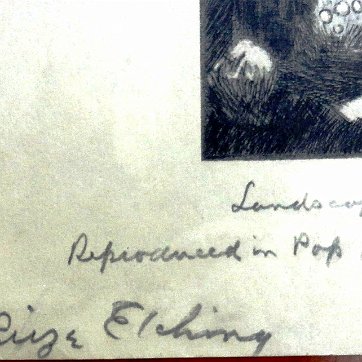 Landscap
Reproduced in Pop
Etching